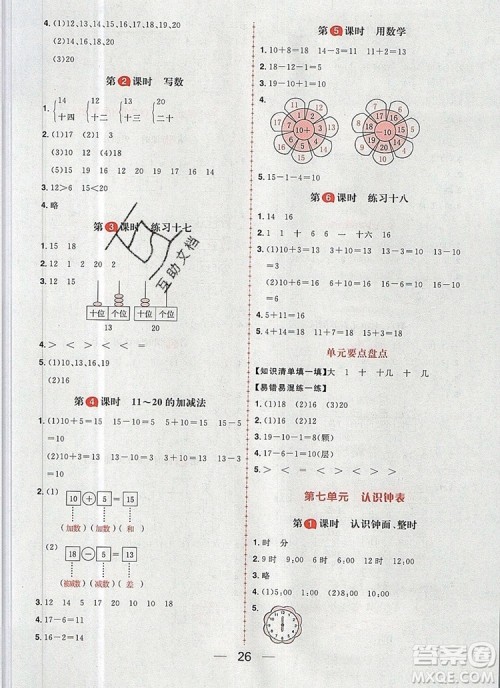 (1)10,13,14,15,16,17,19,20
(2)10,17,18,19
(3)20
第2课时 写数
1. 14 16 13 12 20
十四 十六 十三 十二 二十
2. (1)17 (2)20 (3)18
17 18 16 15 20
3. 12＞6 15＜20
4. 略
第3课时 练习十七
1. 15 18
2. 12 1 2 20 2
3.
十位 个位 十位 个位
13 20
4. ＞ ＜ ＞ ＜ ＜ ＜
5. (1)10,13,16,19
(2)20,15,10
第4课时 11～20的加减法
1. (1)10+5=15 5+10=15 15-5=10 15-10=5
(2)10+3=13 3+10=13 13-3=10 13-10=3
2. (1)
10 + 5 = 15
(加数) (加数) (和)
(2)
18 - 5 = 13
(被减数) (减数) (差)
3. 12 10 14 10 18 3
4. 17-6=11
5. 16-2=14
第5课时 用数学
1. 10+8=18 15-3=11 13+1=14
2. 18-12-1=5
3. 19-10-1=8
4.
10+
-10
5. 15-1-4=10
第6课时 练习十八
1. 14 16
2. 1 1 十 6 一 十六 16
3. (1)10+3=13 3+10=13 13-3=10 13-10=3
(2)10+5=15 5+10=15 15-5=10 15-10=5
4. 3+13=16
5. 4+14=18 12+2=14 5+11=16
单元要点盘点
【知识清单填一填】大 1 十 十几 十几
【易错易混练一练】
1. (1)20 (2)16 (3)20
2. 19-10-1=8(颗)
3. 19-10+1=10(颗)
4. 17-6-1=10(层)
5. ＞ ＞ ＜ ＜ ＜ ＞
第七单元 认识钟表
第1课时 认识钟面、整时
1. 时 分
2. 7:00 12:00 9:00 6:00 12:00
3. 略
4. (1)5:00 (2)8:00 (3)1:00
5.
26
互助文档
答案圈
MXQE.COM